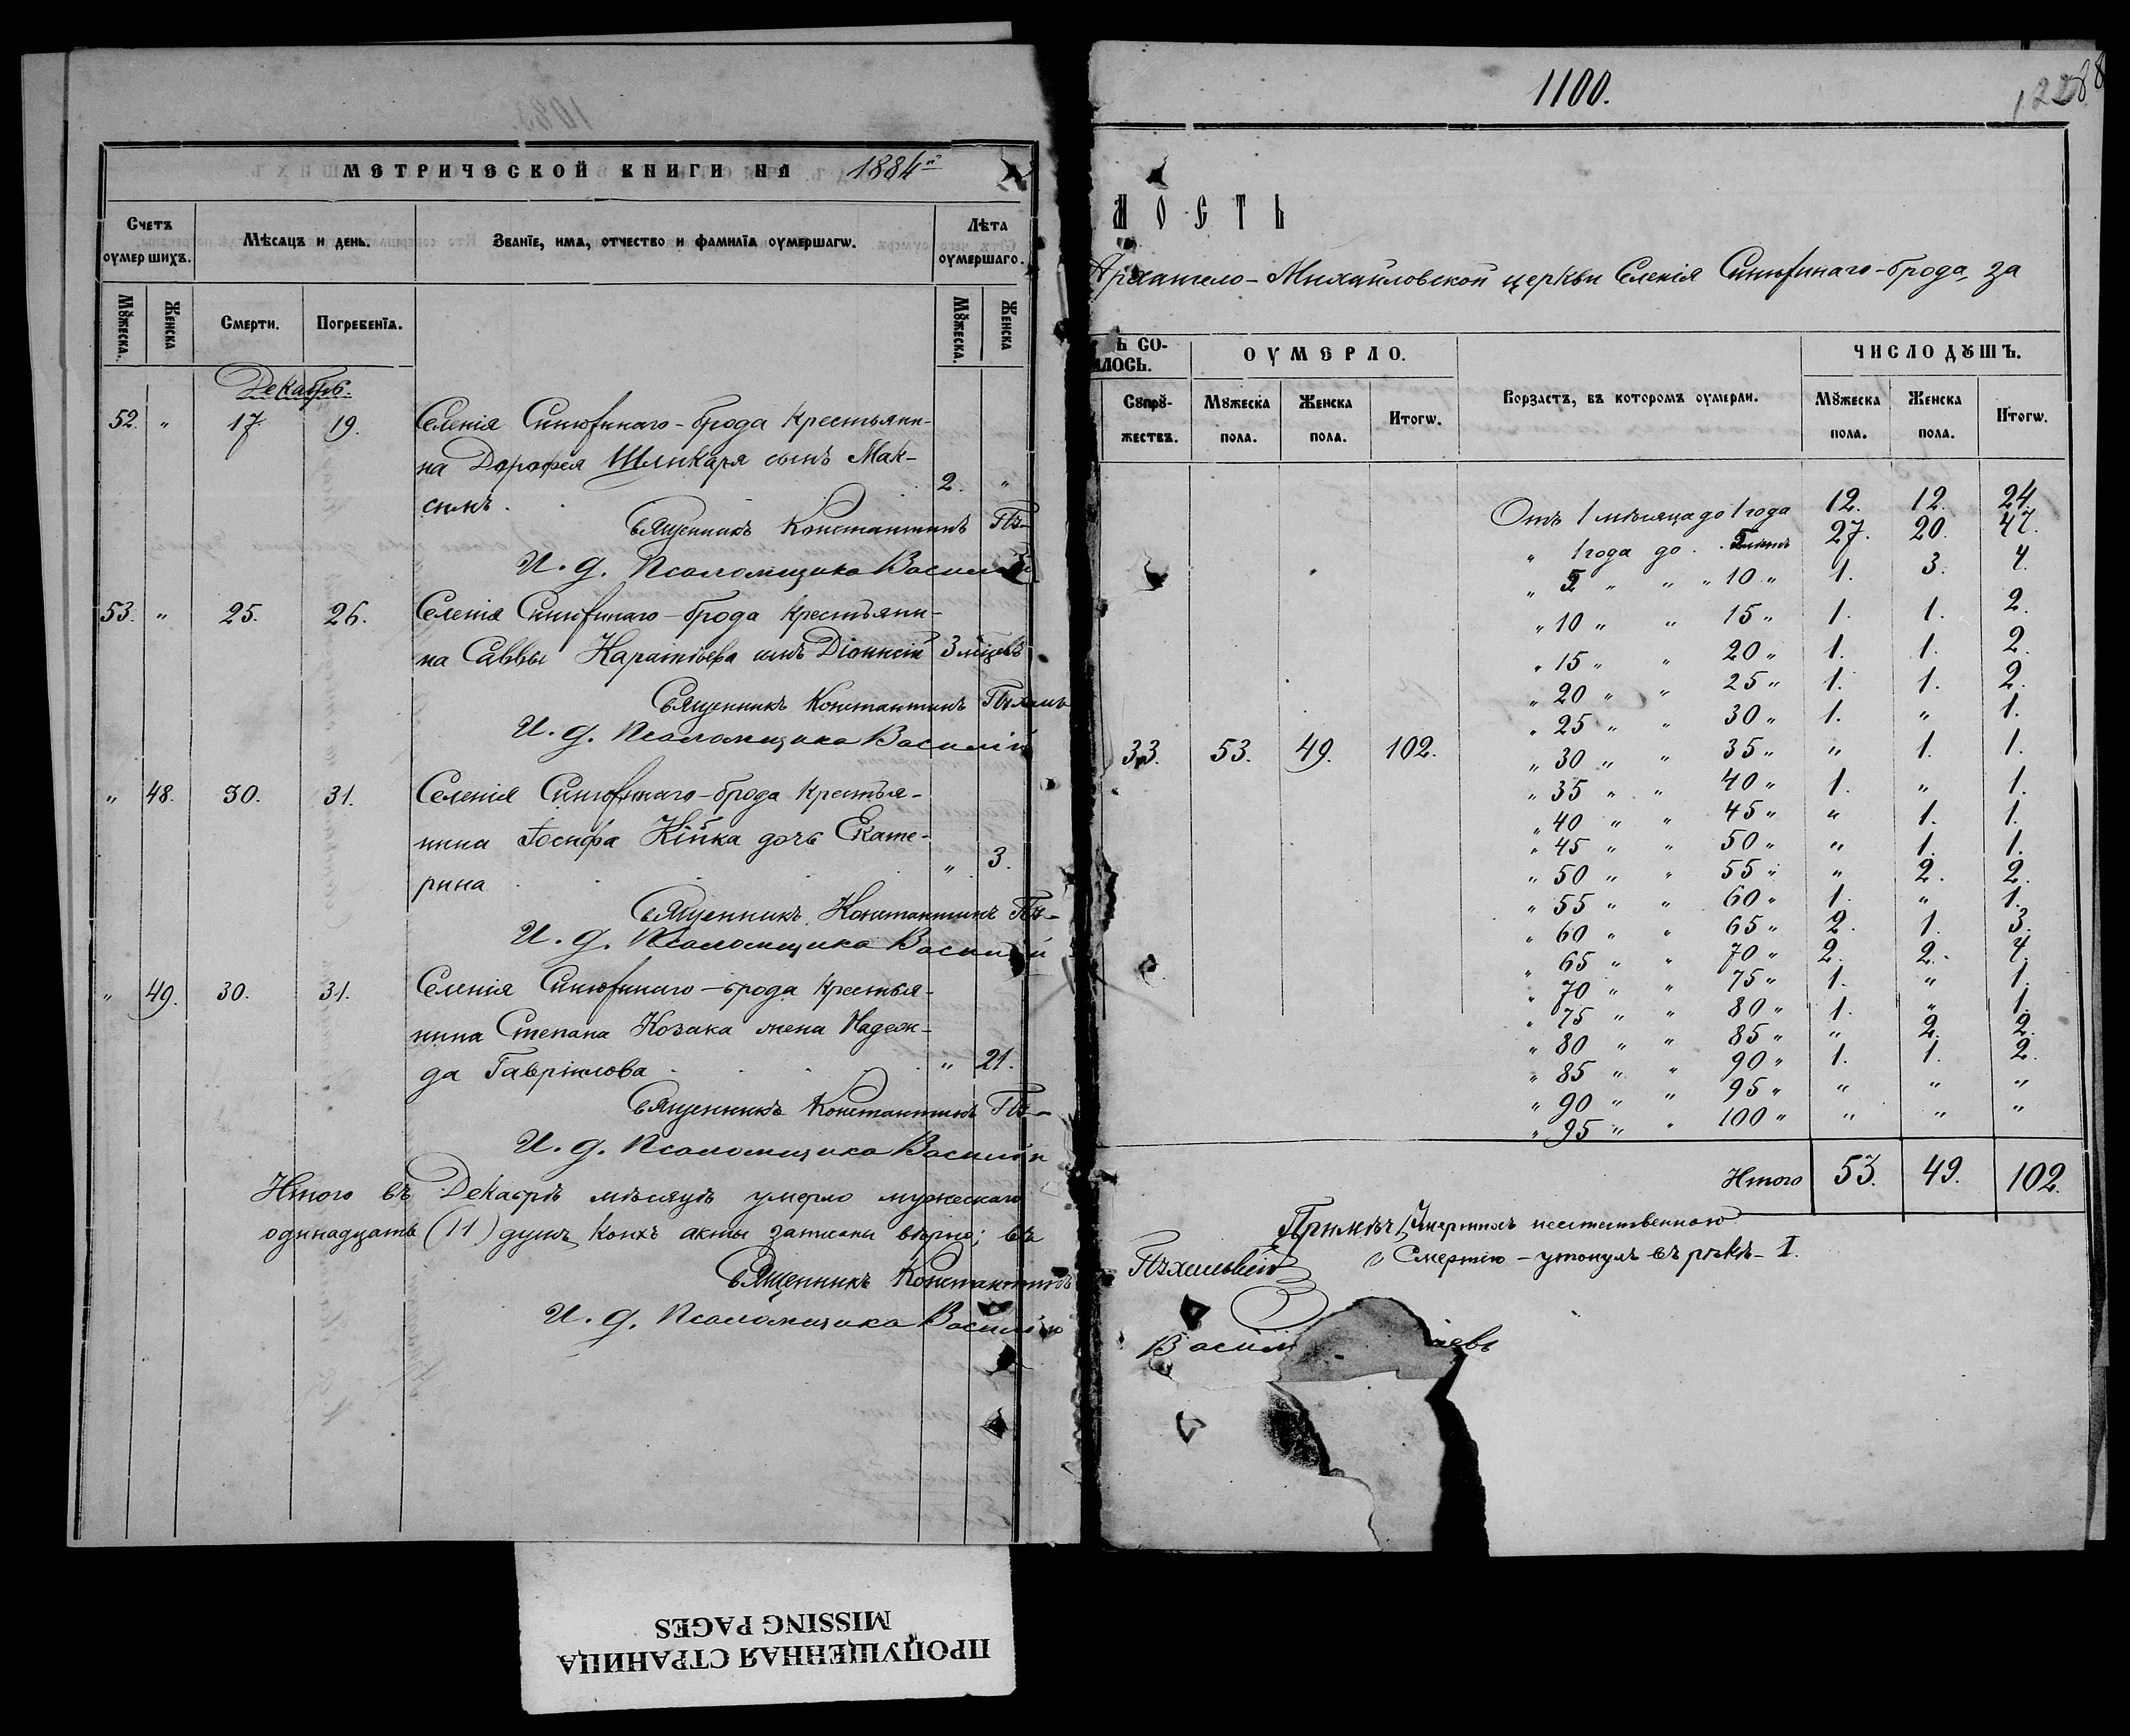 МЕТРИЧЕСКОЙ КНИГИ НА 1884й
Счетъ оумершихъ.
Мѣсяцъ и день.
Званїе, имя, отчество и фамилїя оумершагw.
Лѣта оумершаго.
Мꙋжеска.
Женска
Смерти.
Погребенїя.
Мꙋжеска.
Женска
Декабрь.
52. " 17 19. Селенія Синюхинаго-брода крестьяни-
на Дорофея Шликаря сынъ Мак-
симъ . 2. "
Священникъ Константинъ Пѣ-
И. д. Псаломщика Василій
53. " 25. 26. Селенія Синюхинаго-брода крестьяни-
на Саввы Каратѣева сынъ Діонисій 3 мѣсцевъ
Священникъ Константинъ
И. д. Псаломщика Василій
" 48. 30. 31. Селенія Синюхинаго-брода крестья-
нина Іосифа Кійка дочь Екате-
рина " 3.
Священникъ Константинъ Пѣ-
И. д. Псаломщика Василій
" 49. 30. 31. Селенія Синюхинаго-брода крестья-
нина Степана Козака жена Надеж-
да Гавріилова " 21.
Священникъ Константинъ Пѣ-
И. д. Псаломщика Василій
Итого въ Декабрѣ мѣсяцѣ умерло мужескаго
одинадцать (11) душъ, коихъ акты записаны вѣрно; въ
Священникъ Константинъ
И. д. Псаломщика Василій
ПРОПУЩЕННАЯ СТРАНИЦА
MISSING PAGES
1100.
МОСТЬ
Архангело-Михайловской церкви Селенія Синюхинаго-брода, за
Ъ СО-
ИЛОСЬ.
ОУМЕРЛО.
Возрастъ, въ которомъ оумерли.
ЧИСЛО ДꙊШЪ.
Сꙋпрꙋ-
жествъ.
Мꙋжеска
пола.
Женска
пола.
Итогw.
Мꙋжеска
пола.
Женска
пола.
Итогw.
33. 53. 49. 102.
Отъ 1 мѣсяца до 1 года 12. 12. 24.
" 1 года до 5 лѣтъ 27. 20. 47.
" 5 " " " 10 " 1. 3. 4.
" 10 " " 15 " 1. 1. 2.
" 15 " " 20 " 1. 1. 2.
" 20 " " 25 " 1. 1. 2.
" 25 " " 30 " 1. " 1.
" 30 " " 35 " " 1. 1.
" 35 " " 40 " 1. " 1.
" 40 " " 45 " " 1. 1.
" 45 " " 50 " " 1. 1.
" 50 " " 55 " " 2. 2.
" 55 " " 60 " 1. " 1.
" 60 " " 65 " 2. 1. 3.
" 65 " " 70 " 2. 2. 4.
" 70 " " 75 " 1. " 1.
" 75 " " 80 " 1. " 1.
" 80 " " 85 " " 2. 2.
" 85 " " 90 " 1. 1. 2.
" 90 " " 95 " " " "
" 95 " " 100 " " " "
Итого 53. 49. 102.
Примѣч. Умершихъ неестественною
Смертію - утонулъ въ рѣкѣ - I.
Васил евъ